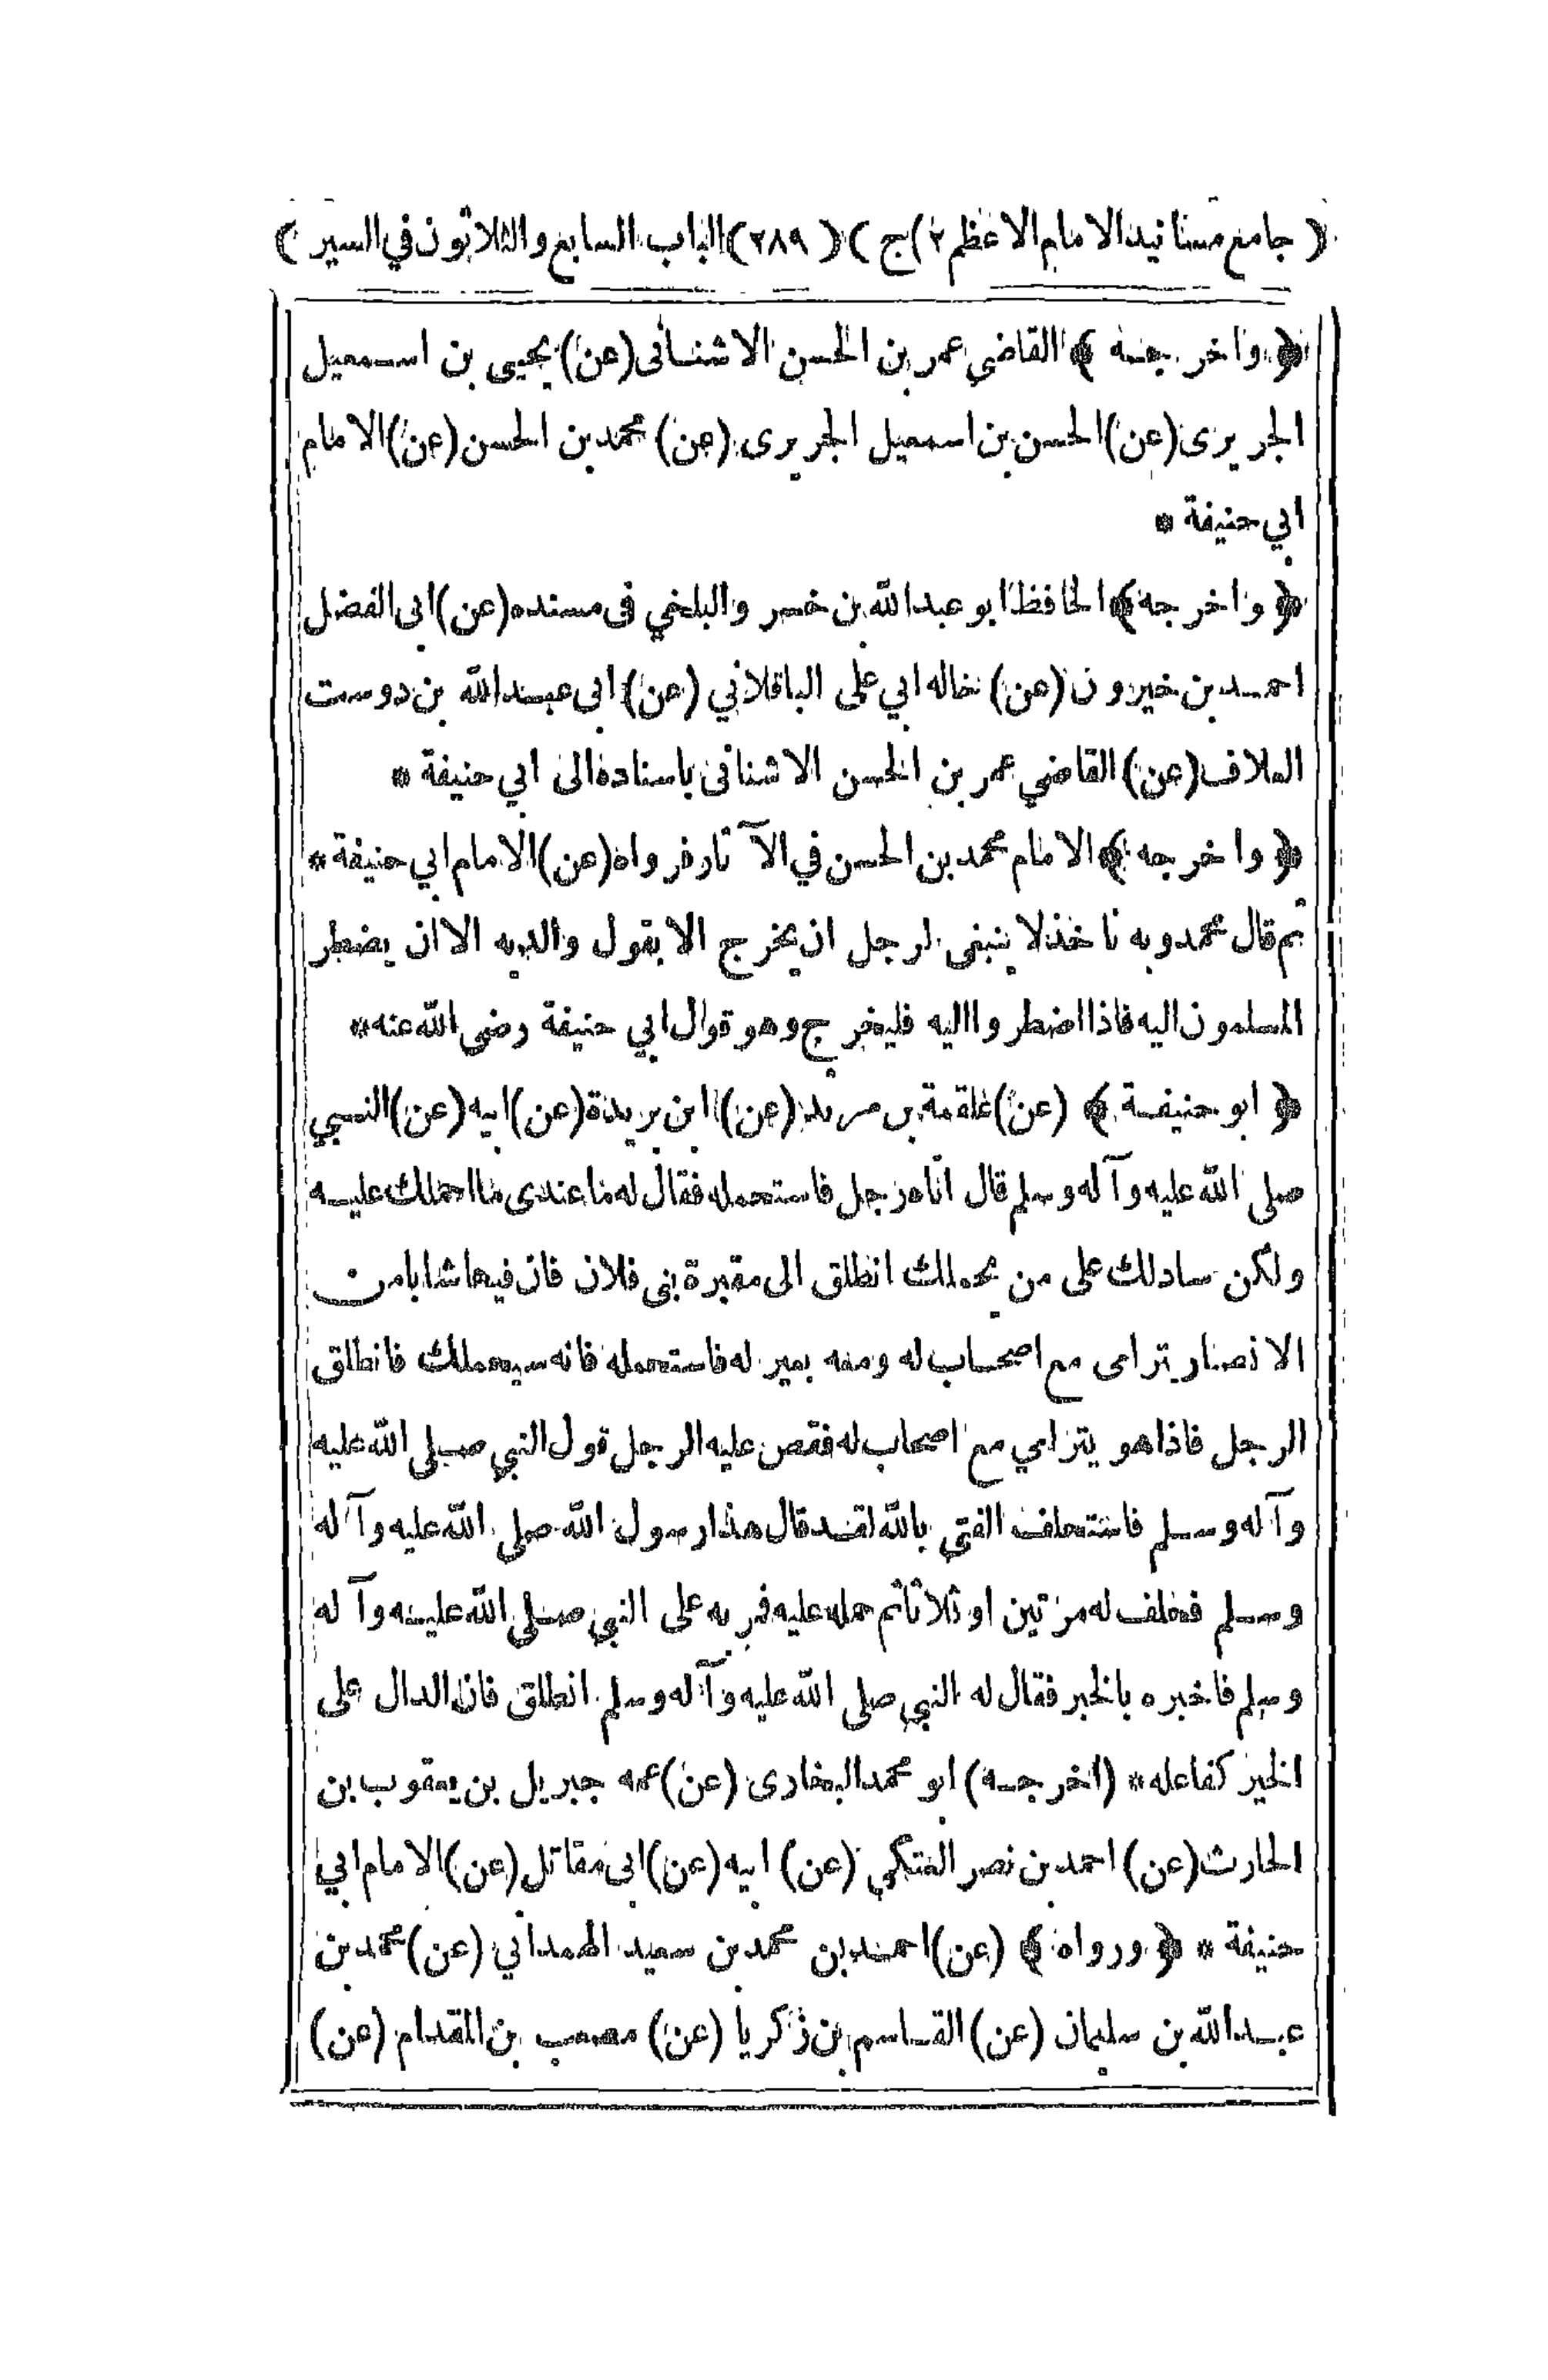 ( جامع مسانيد الامام الاعظم ٢)ج ) ( ٢٨٩ )الباب السابع والثلاثون في السير )
﴿ واخرجه ﴾ القاضي عمر بن الحسن الاشنانى (عن) يحيى بن اسمعيل
الجريرى (عن) الحسن بن اسمعيل الجريرى (عن) محمد بن الحسن (عن) الامام
ابي حنيفة *
﴿ واخرجه ﴾ الحافظ ابو عبدالله بن خسرو البلخي فى مسنده (عن) ابى الفضل
احمد بن خيرون (عن) خاله ابي على الباقلاني (عن) ابى عبدالله بن دوست
العلاف (عن) القاضي عمر بن الحسن الاشنانى باسناده الى ابي حنيفة *
﴿ واخرجه ﴾ الامام محمد بن الحسن في الآثار فرواه (عن) الامام ابي حنيفة *
ثم قال محمد وبه ناخذ لا ينبغى لرجل ان يخرج الا بقول والديه الا ان يضطر
المسلمون اليه فاذا اضطروا اليه فليخرج وهو قول ابي حنيفة رضى الله عنه *
﴿ ابو حنيفة ﴾ (عن) علقمة بن مرثد (عن) ابن بريدة (عن) ابيه (عن) النبي
صلى الله عليه وآله وسلم قال اتاه رجل فاستحمله فقال له ما عندى ما احملك عليه
ولكن سادلك على من يحملك انطلق الى مقبرة بنى فلان فان فيها شابا من
الانصار يترامى مع اصحاب له ومعه بعير له فاستحمله فانه سيحملك فانطلق
الرجل فاذا هو يترامي مع اصحاب له فقص عليه الرجل قول النبي صلى الله عليه
وآله وسلم فاستحلف الفتى بالله لقد قال هذا رسول الله صلى الله عليه وآله
وسلم فحلف له مرتين او ثلاثا ثم حمله عليه فمر به على النبي صلى الله عليه وآله
وسلم فاخبره بالخبر فقال له النبي صلى الله عليه وآله وسلم انطلق فان الدال على
الخير كفاعله * (اخرجه) ابو محمد البخارى (عن) عمه جبريل بن يعقوب بن
الحارث (عن) احمد بن نصر العتكي (عن) ابيه (عن) ابى مقاتل (عن) الامام ابي
حنيفة * ﴿ ورواه ﴾ (عن) احمد بن محمد بن سعيد الهمداني (عن) محمد بن
عبدالله بن سليمان (عن) القاسم بن زكريا (عن) مصعب بن المقدام (عن)